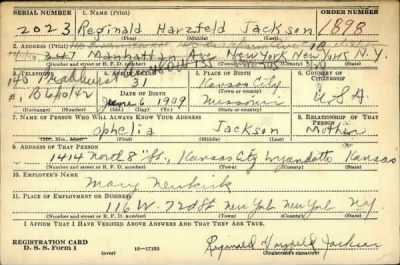 SERIAL NUMBER 1. NAME (Print) ORDER NUMBER
2023 Reginald Harzfeld Jackson 1898
(First) (Middle) (Last)
2. ADDRESS (Print)
347 Manhattan Av. New York New York N. Y.
(Number and street or R. F. D. number) (Town) (County) (State)
3. TELEPHONE 4. AGE IN YEARS 5. PLACE OF BIRTH 6. COUNTRY OF CITIZENSHIP
Kansas City
DATE OF BIRTH (Town or county)
June 6 1909 Missouri U.S.A
(Exchange) (Number) (Mo.) (Day) (Yr.) (State or country)
7. NAME OF PERSON WHO WILL ALWAYS KNOW YOUR ADDRESS 8. RELATIONSHIP OF THAT PERSON
Ophelia Jackson Mother
(Mr., Mrs., Miss) (First) (Middle) (Last)
9. ADDRESS OF THAT PERSON
1414 North 8th St., Kansas City Wyandotte Kansas
(Number and street or R. F. D. number) (Town) (County) (State)
10. EMPLOYER'S NAME
Mary Newkirk
11. PLACE OF EMPLOYMENT OR BUSINESS
116 W. 72d St New York New York NY.
(Number and street or R. F. D. number) (Town) (County) (State)
I AFFIRM THAT I HAVE VERIFIED ABOVE ANSWERS AND THAT THEY ARE TRUE.
REGISTRATION CARD
D. S. S. Form 1 (over) 16-17105 Reginald Harzfeld Jackson
(Registrant's signature)